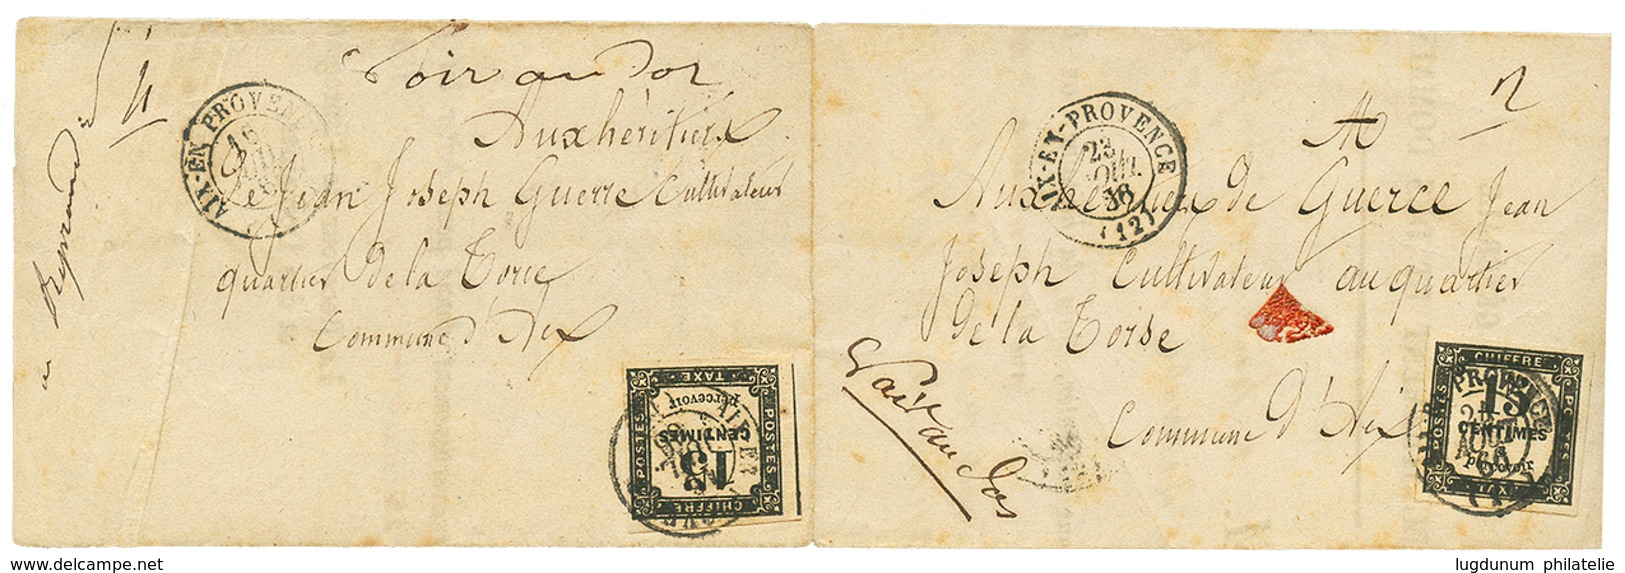 Voir au dos
Aux héritiers
De Jean Joseph Guerre Cultivateur
quartier de la Torse
Commune d'Aix
AIX-EN-PROVENCE
CHIFFRE
15
CENTIMES
percevoir
TAXE
POSTES
POSTES
2
AIX-EN-PROVENCE
23
(12)
Aux héritiers de Guerce Jean
Joseph Cultivateur au quartier
De la Torse
Commune d'Aix
Voir au dos
CHIFFRE
15
CENTIMES
percevoir
TAXE
POSTES
POSTES
PROVENCE
delcampe.net
lugdunum philatelie